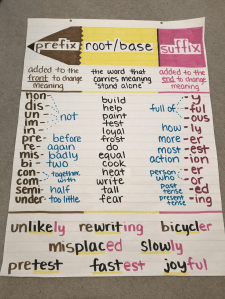 prefix root/base suffix
added to the front to change meaning
the word that carries meaning stand alone
added to the end to change meaning
non-
dis-
un-
im-
in-
not
pre- before
re- again
mis- badly
bi- two
con-
com-
together, with
semi- half
under- too little
build
help
paint
test
loyal
frost
do
equal
cook
heat
write
tall
fear
full of
-y
-ful
-ous
how -ly
more -er
most -est
action -ion
person who
-er
-or
past tense -ed
present tense -ing
unlikely rewriting bicycler
misplaced slowly
pretest fastest joyful